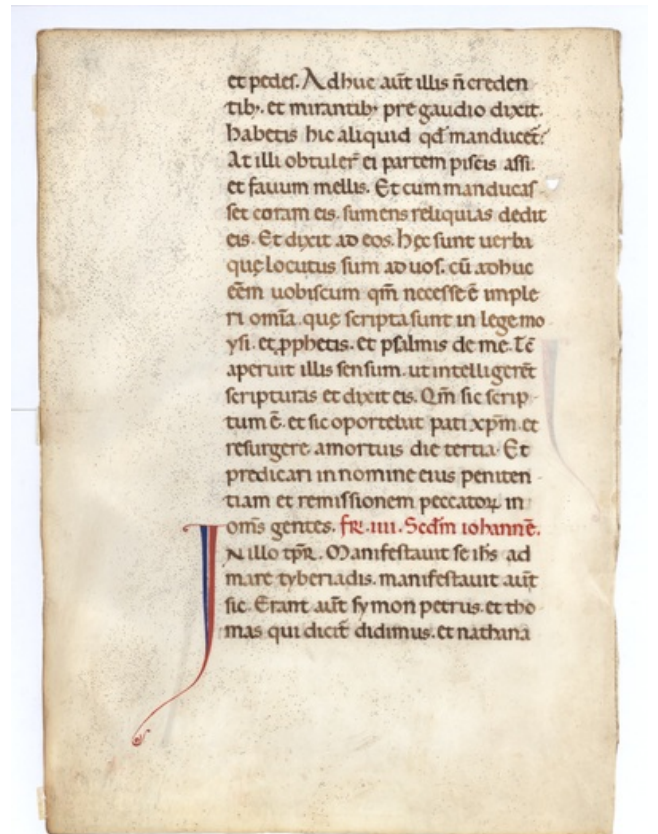 et pedes. Adhuc aūt illis n̄ creden
tib;. et mirantib; pre gaudio dixit.
habetis hic aliquid qd̄ manducet̄?
At illi obtuler̄ ei partem piscis assi.
et fauum mellis. Et cum manducas
set coram eis. sumens reliquias dedit
eis. Et dixit ad eos. hęc sunt uerba
quę locutus sum ad uos. cū adhuc
eēm uobiscum qm̄ necesse ē imple
ri om̄ia que scripta sunt in lege mo
ysi. et ꝓphetis. et psalmis de me. Tc̄
aperuit illis sensum. ut intelligerēt
scripturas et dixit eis. Qm̄ sic scrip
tum ē. et sic oportebat pati xp̄m. et
resurgere amortuis die tertia. Et
predicari in nomine eius peniten
tiam et remissionem peccatoꝝ in
om̄s gentes. fr̄. iiii. Scd̄m iohannē.
IN illo tp̄r. Manifestauit se ih̄s ad
mare tyberiadis. manifestauit aūt
sic. Erant aūt symon petrus. et tho
mas qui dicit̄ didimus. et nathana